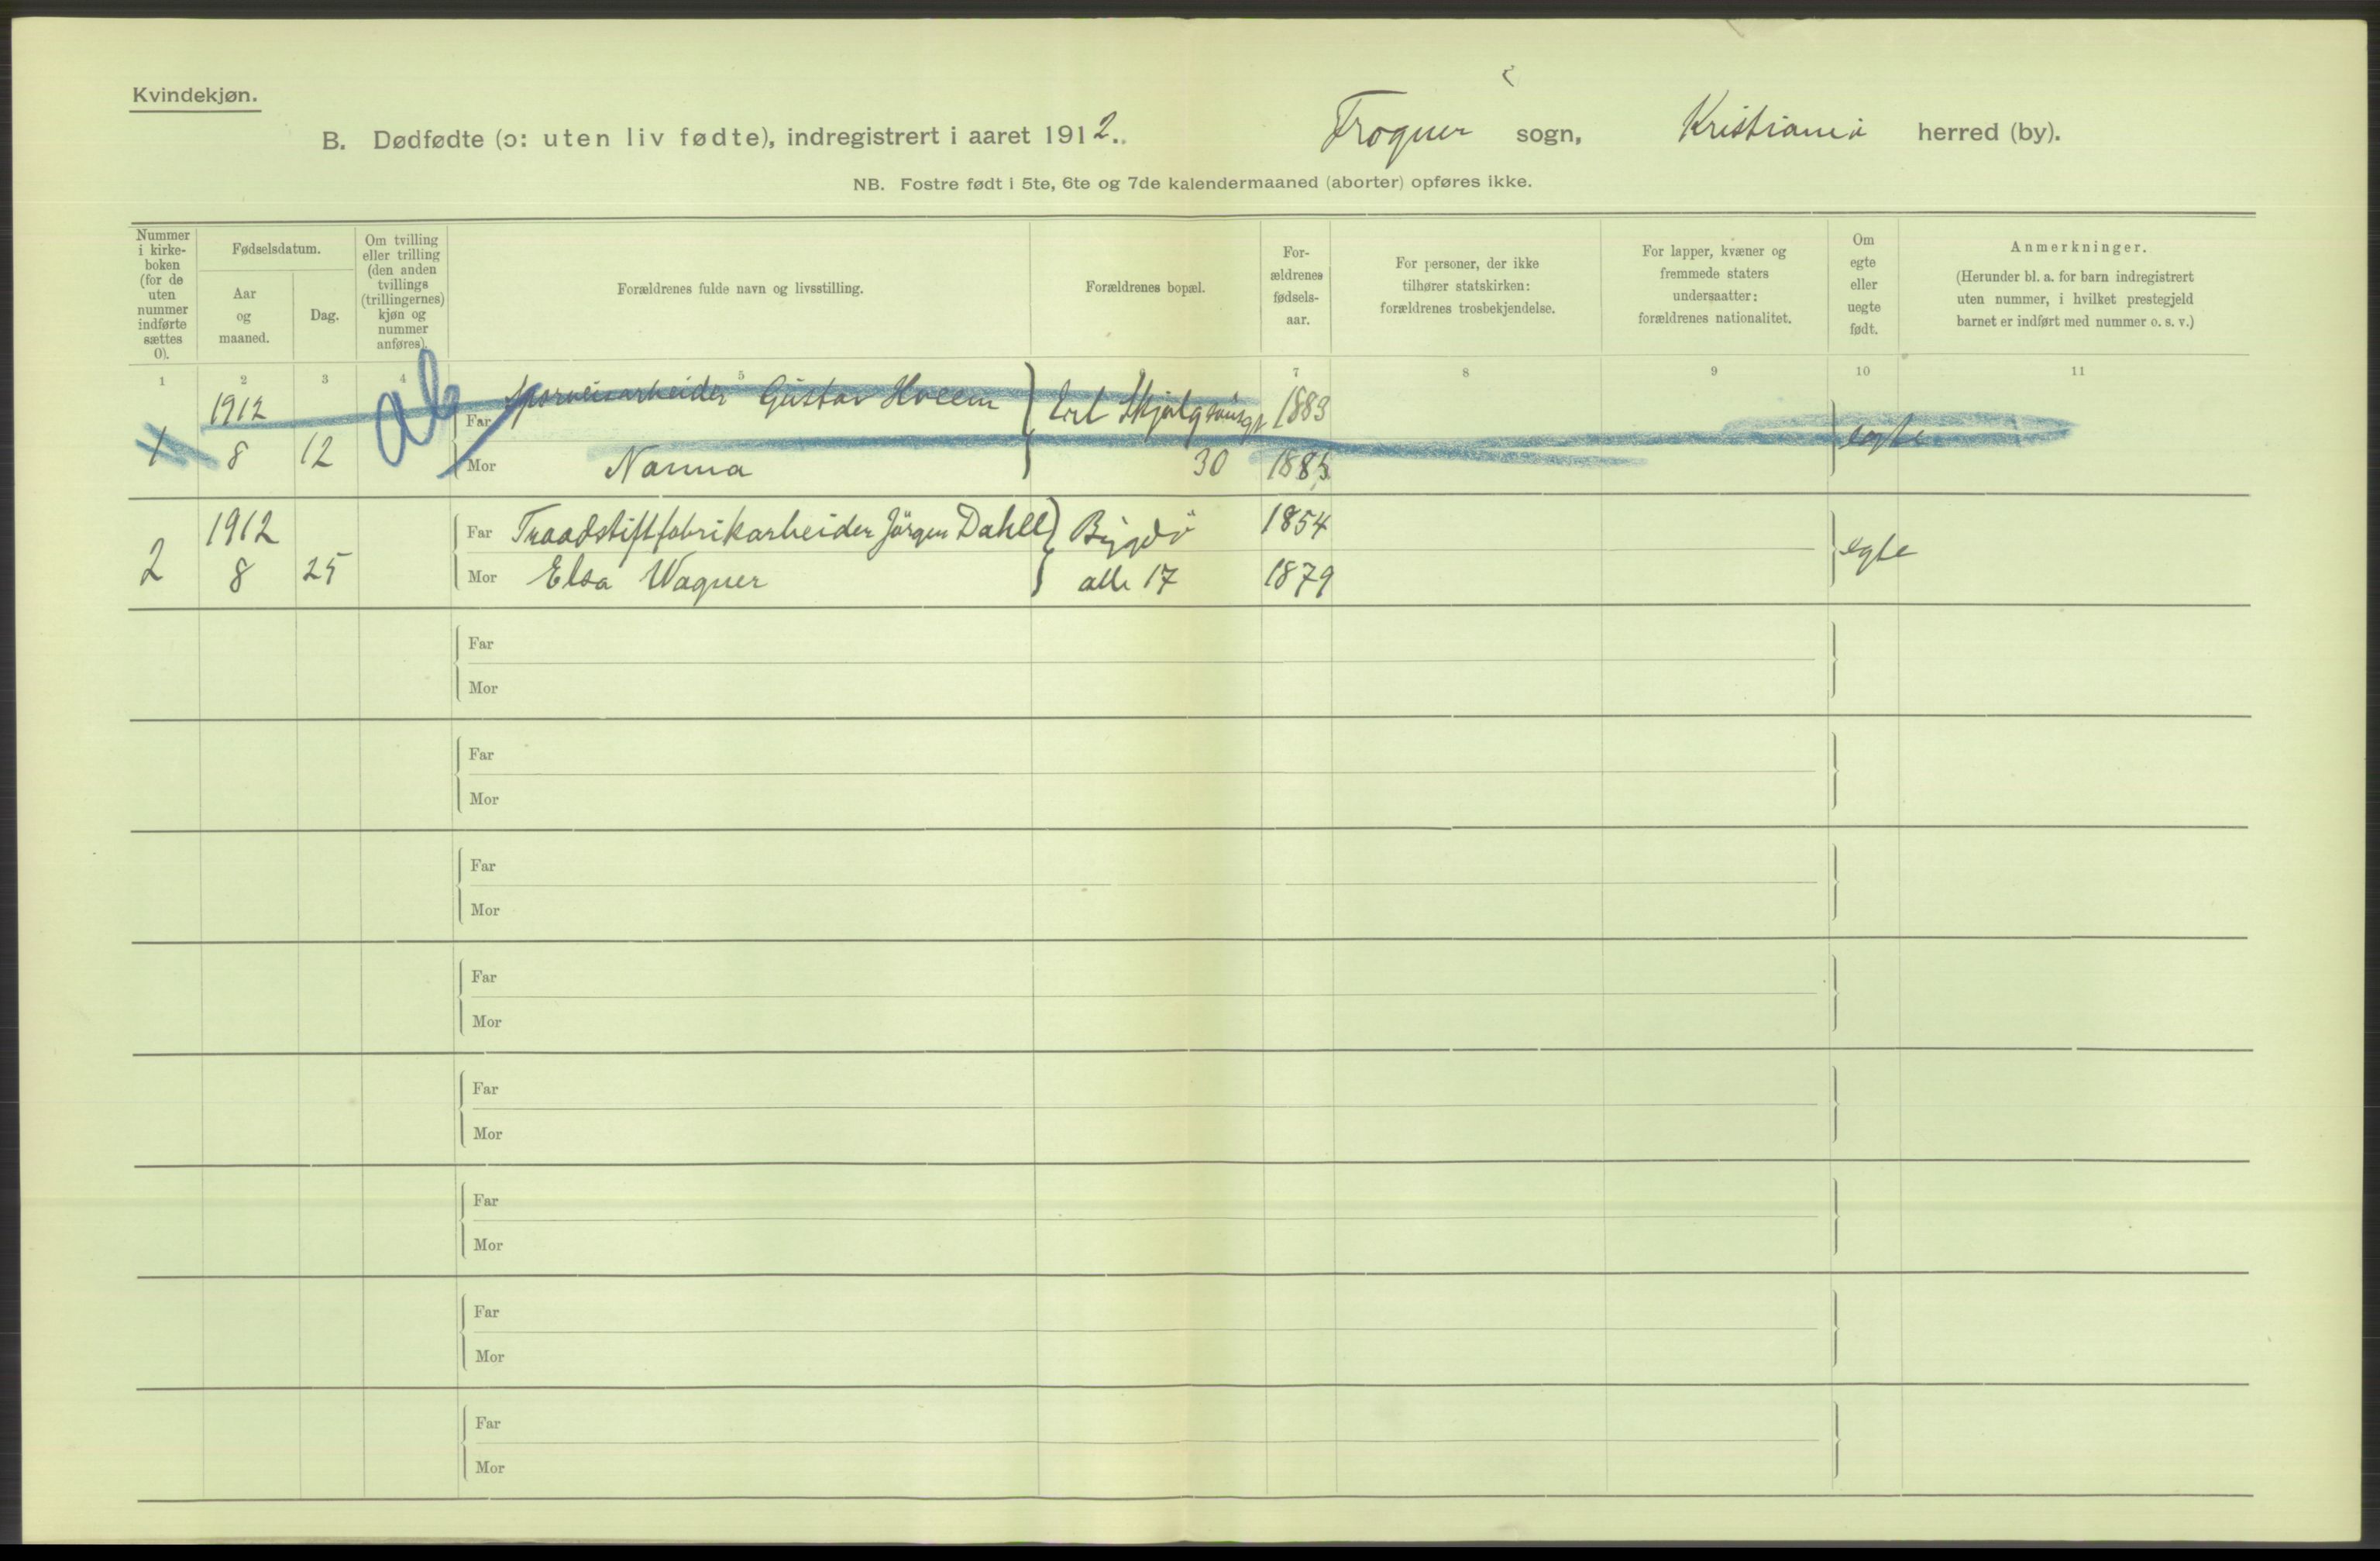 Kvindekjøn.
B. Dødfødte (ɔ: uten liv fødte), indregistrert i aaret 1912. Frogner sogn, Kristiania herred (by).
NB. Fostre født i 5te, 6te og 7de kalendermaaned (aborter) opføres ikke.
Nummer i kirke-boken (for de uten nummer indførte sættes 0).
Fødselsdatum.
Aar og maaned.
Dag.
Om tvilling eller trilling (den anden tvillings (trillingernes) kjøn og nummer anføres).
Forældrenes fulde navn og livsstilling.
Forældrenes bopæl.
For-ældrenes fødsels-aar.
For personer, der ikke tilhører statskirken: forældrenes trosbekjendelse.
For lapper, kvæner og fremmede staters undersaatter: forældrenes nationalitet.
Om egte eller uegte født.
Anmerkninger.
(Herunder bl. a. for barn indregistrert uten nummer, i hvilket prestegjeld barnet er indført med nummer o. s. v.)
1 2 3 4 5 7 8 9 10 11
1912 ab Far Sporveisarbeider Gustav Hveem Erl Skjalgsønsgt 1883
1 8 12 Mor Nanna 30 1885 egte
1912 Far Traadstiftfabrikarbeider Jörgen Dahll Bygdö 1854
2 8 25 Mor Elsa Wagner alle 17 1879 egte
Far
Mor
Far
Mor
Far
Mor
Far
Mor
Far
Mor
Far
Mor
Far
Mor
Far
Mor